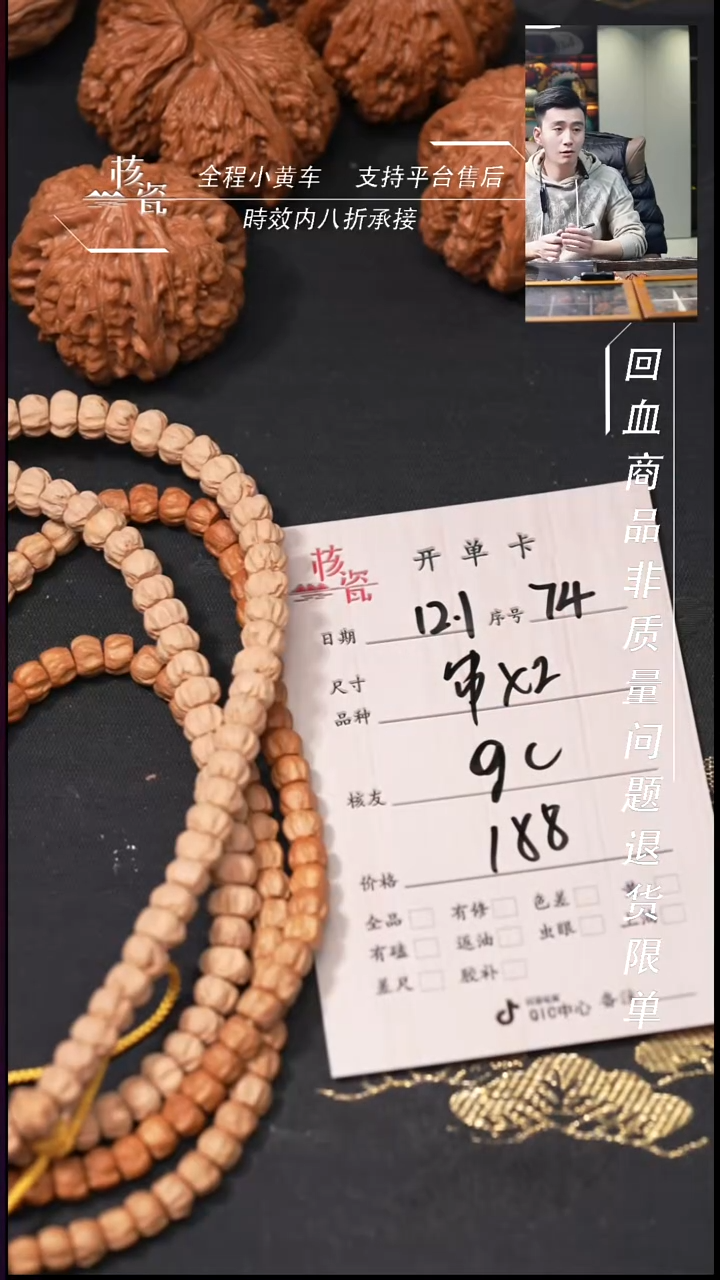 核瓷
全程小黄车 支持平台售后
時效内八折承接
回血商品非质量问题退货限单
核瓷
开单卡
日期 12.1 序号 74
尺寸
品种
串X2
核友 9C
价格 188
全品 有修 色差
有磕 返油 虫眼
差尺 胶补
QIC中心 备注